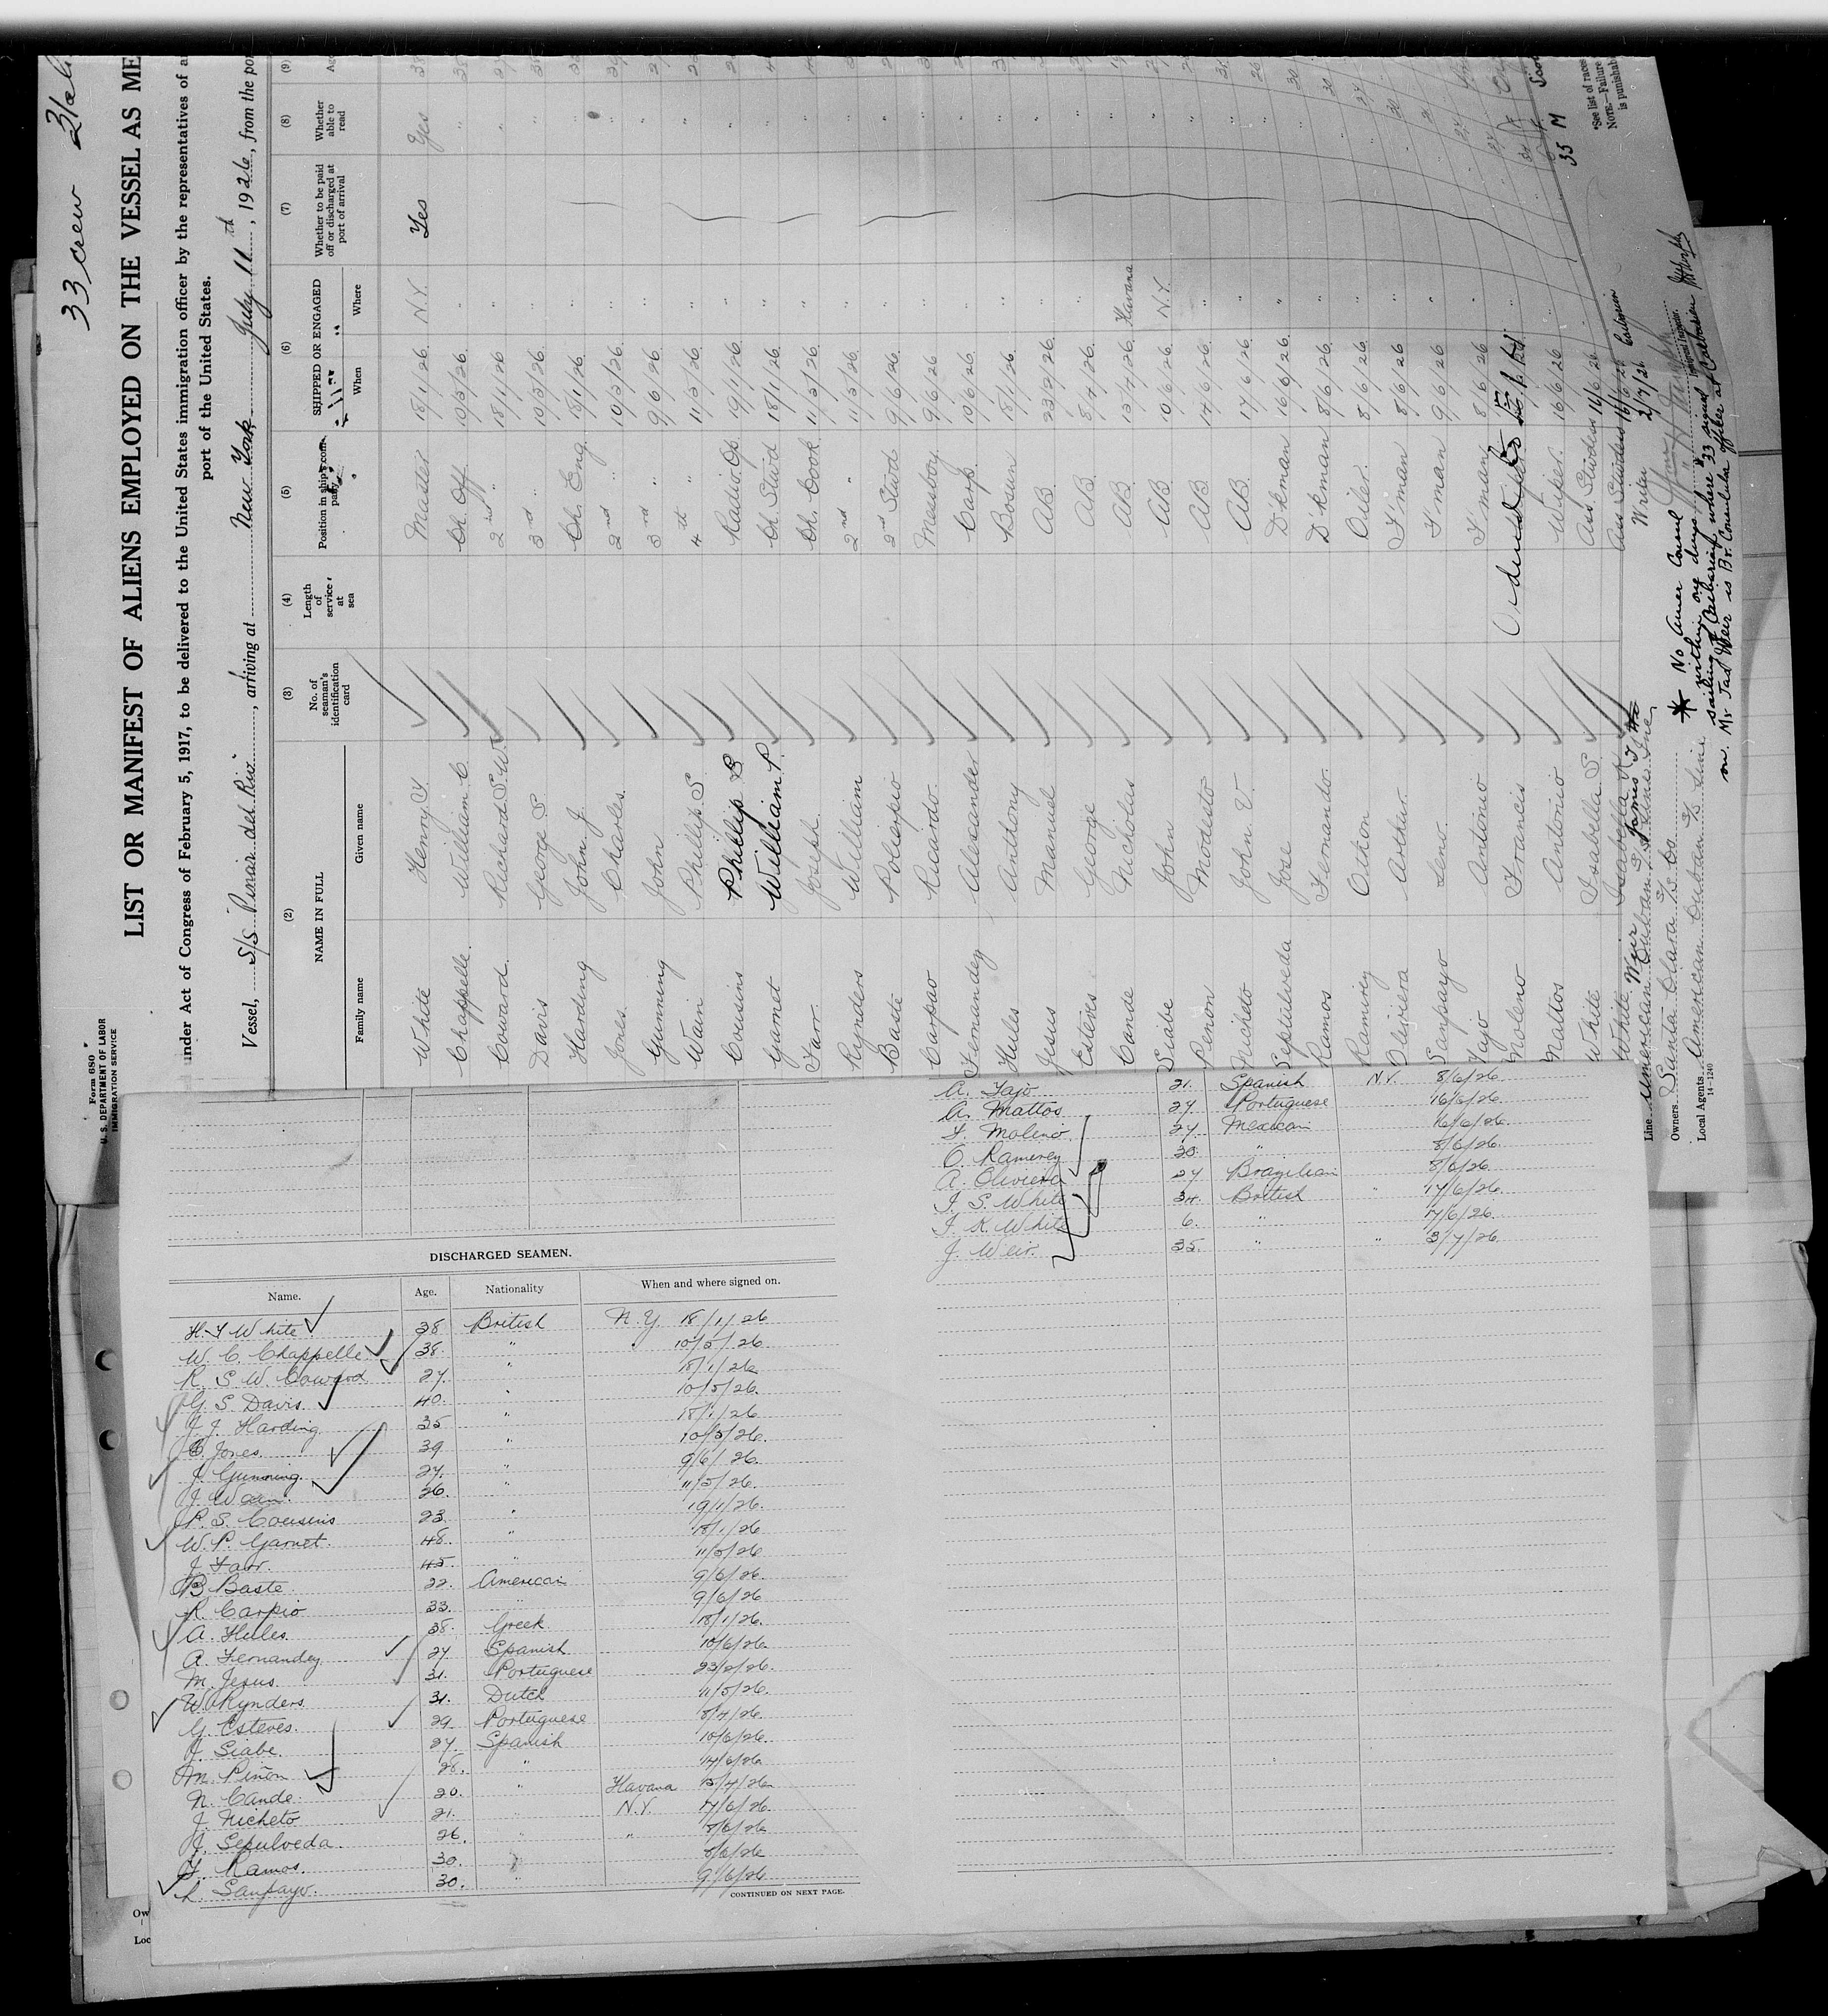 33 crew
Form 680
U. S. DEPARTMENT OF LABOR
IMMIGRATION SERVICE
LIST OR MANIFEST OF ALIENS EMPLOYED ON THE VESSEL AS ME
under Act of Congress of February 5, 1917, to be delivered to the United States immigration officer by the representatives of a
port of the United States.
Vessel, S/S "Pinar del Rio", arriving at New York July 11th, 1926, from the por
(2) (3) (4) (5) (6) (7) (8) (9)
NAME IN FULL No. of seaman's identification card Length of service at sea Position in ship's company SHIPPED OR ENGAGED Whether to be paid off or discharged at port of arrival Whether able to read Ag
Family name Given name When Where
White Henry Y. Master 18/1/26 N.Y. Yes Yes 38
Chappelle William C. Ch. Off 10/5/26 " "
Coward Richard S.W. 2nd " 18/1/26 " "
Davis George S. 3rd " 10/5/26 " "
Harding John J. Ch. Eng 18/1/26 "
Jones Charles 2nd " 10/5/26 " "
Gunning John 3rd " 9/6/26 " "
Wain Phillip S 4th " 11/5/26 " "
Cousins Phillip S Radio Op. 19/1/26 " "
Garnet William P. Ch. Stw'd 18/1/26 " "
Farr Joseph Ch. Cook 11/5/26 " "
Rynders William 2nd " 11/5/26 " "
Baste Policarpio 2nd Stwd 9/6/26 " "
Carpao Ricardo Messboy 9/6/26 " "
Fernandez Alexander Carp. 10/6/26 " "
Hules Anthony Bosun 18/1/26 " "
Jesus Manuel AB 23/2/26 " "
Esteves George AB 8/4/26 " "
Cande Nicholas AB 15/4/26 Havana "
Siabe John AB 10/6/26 N.Y. "
Penon Modesto AB 14/6/26 " "
Nicheto John V. AB 17/6/26 " "
Septulveda Jose D'kman 16/6/26 "
Ramos Fernando D'kman 8/6/26
Ramirez Othon Oiler 8/6/26
Oliviera Arthur F'man 8/6/26
Sanpayo Leno F'man 9/6/26
Tajo Antonio F'man 8/6/26
Moleno Francis
Mattos Antonio Wiper 16/6/26
White Isabella S Ass Studess 16/6/26
White Isabella K Ass Studess 16/6/26
Weir James Writer 2/7/26 Caibarien 35 M
Line American Cuban S.S. Line Inc.
Owners Santa Clara S.S. Co.
Local Agents American Cuban S.S. Line
14—1240
* No Amer Consul
within one days
sailing of Caibarien where 33 signed
on. Mr Jas Weir is Br. Consular officer at Caibarien
*See list of races
NOTE.—Failure
is punishab
DISCHARGED SEAMEN.
Name. Age. Nationality When and where signed on.
H Y White 38 British N.Y. 18/1/26
W. C. Chappelle 38. " " 10/5/26
R S. W. Coward 27. " 18/1/26
G. S. Davis 40. " 10/5/26.
J. J. Harding 35 " 18/1/26
C. Jones 39 " 10/5/26.
J. Gunning 27. " 9/6/26.
J. Wain 26. " 11/5/26.
P. S. Cousins 23. " 19/1/26
W. P. Garnet 48. " 18/1/26
J. Farr 45. " 11/5/26
B Baste 22. American 9/6/26.
R. Carpio 33. " 9/6/26
A. Hules 38. Greek 18/1/26.
A. Fernandez 27. Spanish 10/6/26
M. Jesus 31. Portuguese 23/2/26.
W. Rynders 31. Dutch 11/5/26.
G. Esteves 29. Portuguese 8/4/26.
J. Siabe 27. Spanish 10/6/26.
M. Piñon 28. " 14/6/26
N. Cande 20. " Havana 15/4/26
J. Nicheto 21. " N.Y. 17/6/26.
J. Sepulveda 26. " " 8/6/26
F. Ramos 30. " 8/6/26
L. Sanpayo 30. " 9/6/26
CONTINUED ON NEXT PAGE.
A. Tajo 21. Spanish N.Y. 8/6/26
A. Mattos 27 Portuguese 16/6/26.
F. Moleno 27. Mexican 16/6/26
O. Ramerez 30. " 8/6/26.
A. Oliviera 27 Brazilian 8/6/26
I. S. White 34. British " 17/6/26.
I K. White 6. " 17/6/26.
J. Weir 35. " " 3/7/26.
Ow
Loc